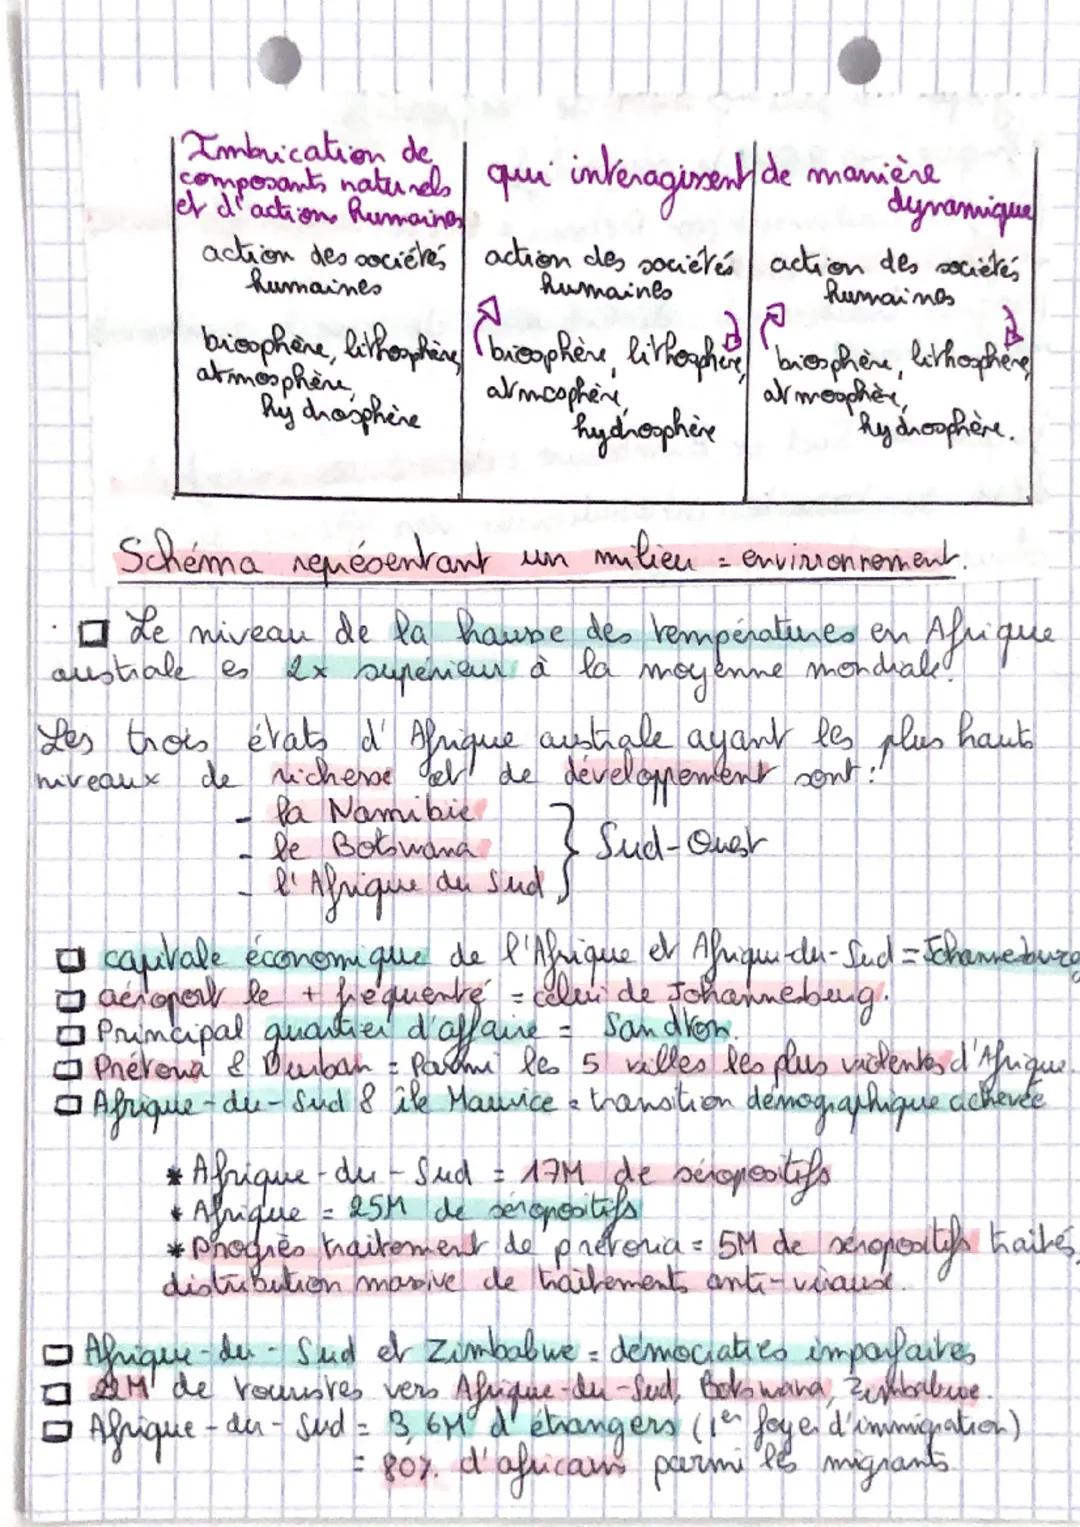 Imbrication de
composants naturels
et d'actions humaines
action des sociétés
humaines
biosphère, lithosphère,
atmosphère,
hydrosphère
qui interagissent
action des sociétés
humaines
biosphère, lithosphère,
atmosphère,
hydrosphère
de manière
dynamique
action des sociétés
humaines
biosphère, lithosphère,
atmosphère,
hydrosphère.
Schéma représentant un milieu = environnement.
Le niveau de la hausse des températures en Afrique
australe es 2x supérieur à la moyenne mondiale.
Les trois états d'Afrique australe ayant les plus hauts
niveaux de richesse et de développement sont :
- la Namibie
- le Botswana
- l'Afrique du Sud
Sud-Ouest
capitale économique de l'Afrique et Afrique-du-Sud = Johannesburg
aéroport le + fréquenté = celui de Johannesburg.
Principal quartier d'affaire = Sandton.
Prétoria & Durban = Parmi les 5 villes les plus violentes d'Afrique.
Afrique-du-Sud & île Maurice = transition démographique achevée
* Afrique-du-Sud = 17M de séropositifs
* Afrique = 25M de séropositifs
* Progrès traitement de pretoria = 5M de séropositifs traités,
distribution massive de traitements anti-viraux.
Afrique-du-Sud et Zimbabwe = démocraties imparfaites
22M de touristes vers Afrique-du-Sud, Botswana, Zimbabwe.
Afrique-du-Sud = 3,6M d'étrangers (1er foyer d'immigration)
= 80% d'africains parmi les migrants